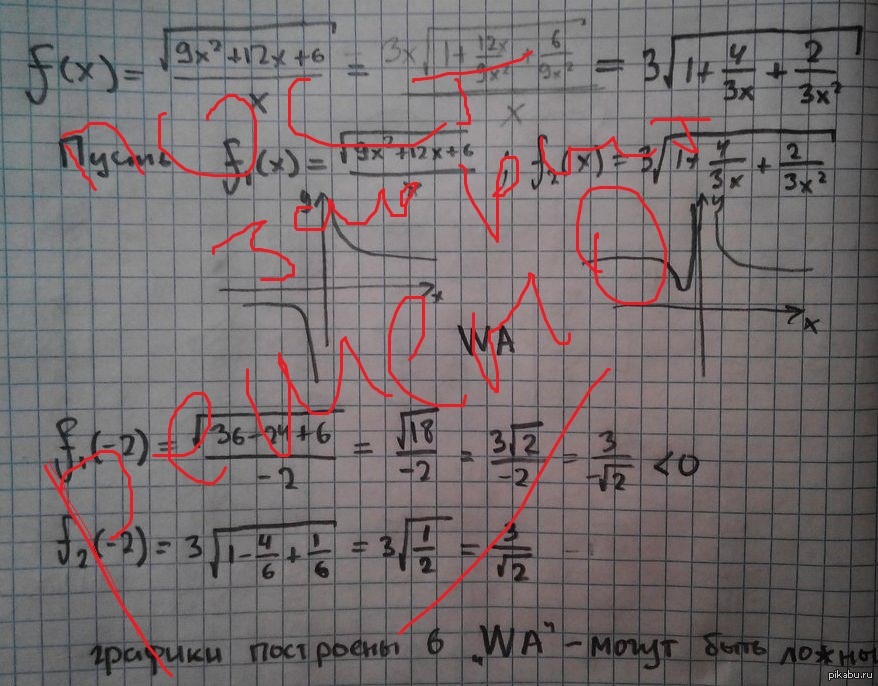 f(x) = √(9x²+12x+6)/x = 3x√(1+12x/9x²+6/9x²)/x = 3√(1+4/3x+2/3x²)
Пусть f₁(x) = √(9x²+12x+6)/x ; f₂(x) = 3√(1+4/3x+2/3x²)
y y
x x
WA
f₁(-2) = √(36-24+6)/-2 = √18/-2 = 3√2/-2 = 3/-√2 <0
f₂(-2) = 3√(1-4/6+1/6) = 3√(1/2) = 3/√2
графики построены в "WA" - могут быть ложны
pikabu.ru